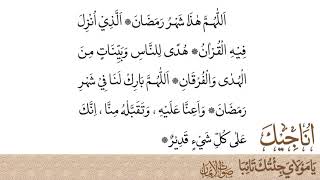 اَللّٰهُمَّ هٰذَا شَهْرُ رَمَضَانَ* اَلَّذِيْ اُنْزِلَ
فِيْهِ الْقُرْاٰنُ* هُدًى لِلنَّاسِ وَبَيِّنَاتٍ مِنَ
الْهُدٰى وَالْفُرْقَانِ* اَللّٰهُمَّ بَارِكْ لَنَا فِيْ شَهْرِ
رَمَضَانَ* وَاَعِنَّا عَلَيْهِ ، وَتَقَبَّلْهُ مِنَّا ، اِنَّكَ
عَلٰى كُلِّ شَيْءٍ قَدِيْرٌ*
اُنَاجِيْكَ
يَا مَوْلَايَ جِئْتُكَ تَائِبًا